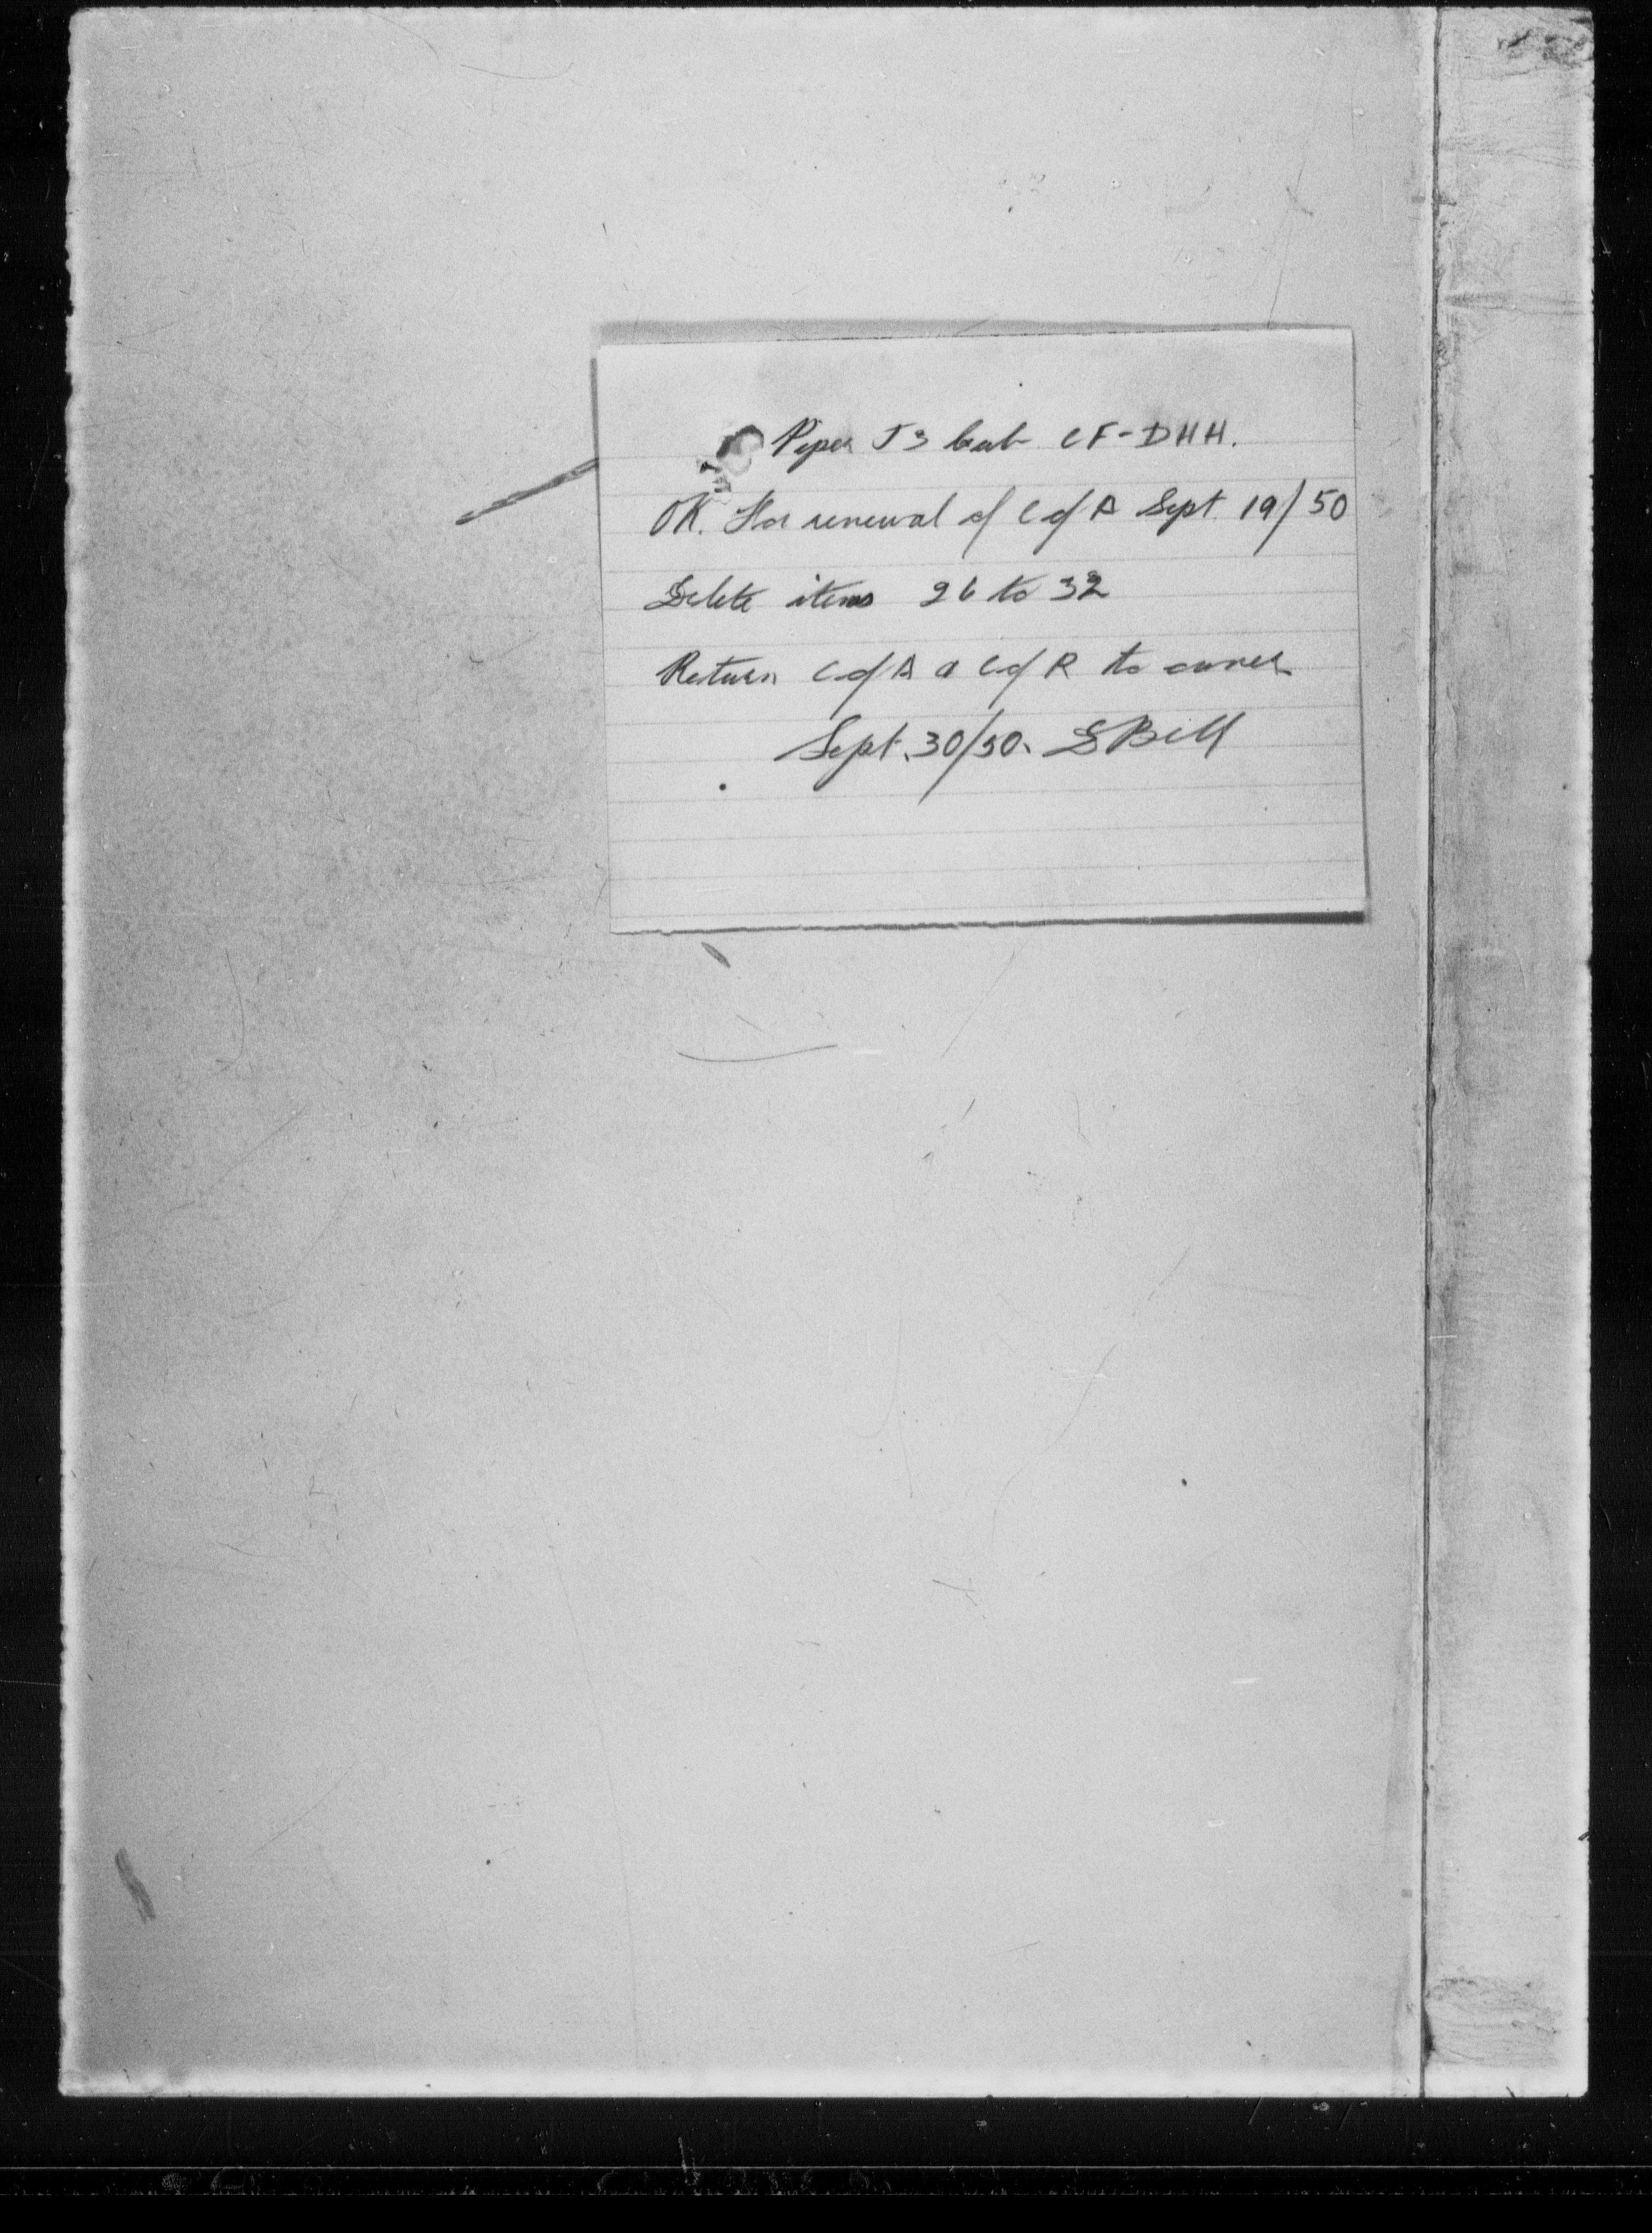 Piper J3 Cub CF-DHH.
OK. For renewal of C of A Sept. 19/50
Delete items 26 to 32
Return C of A & C of R to owner
Sept. 30/50. S Bell